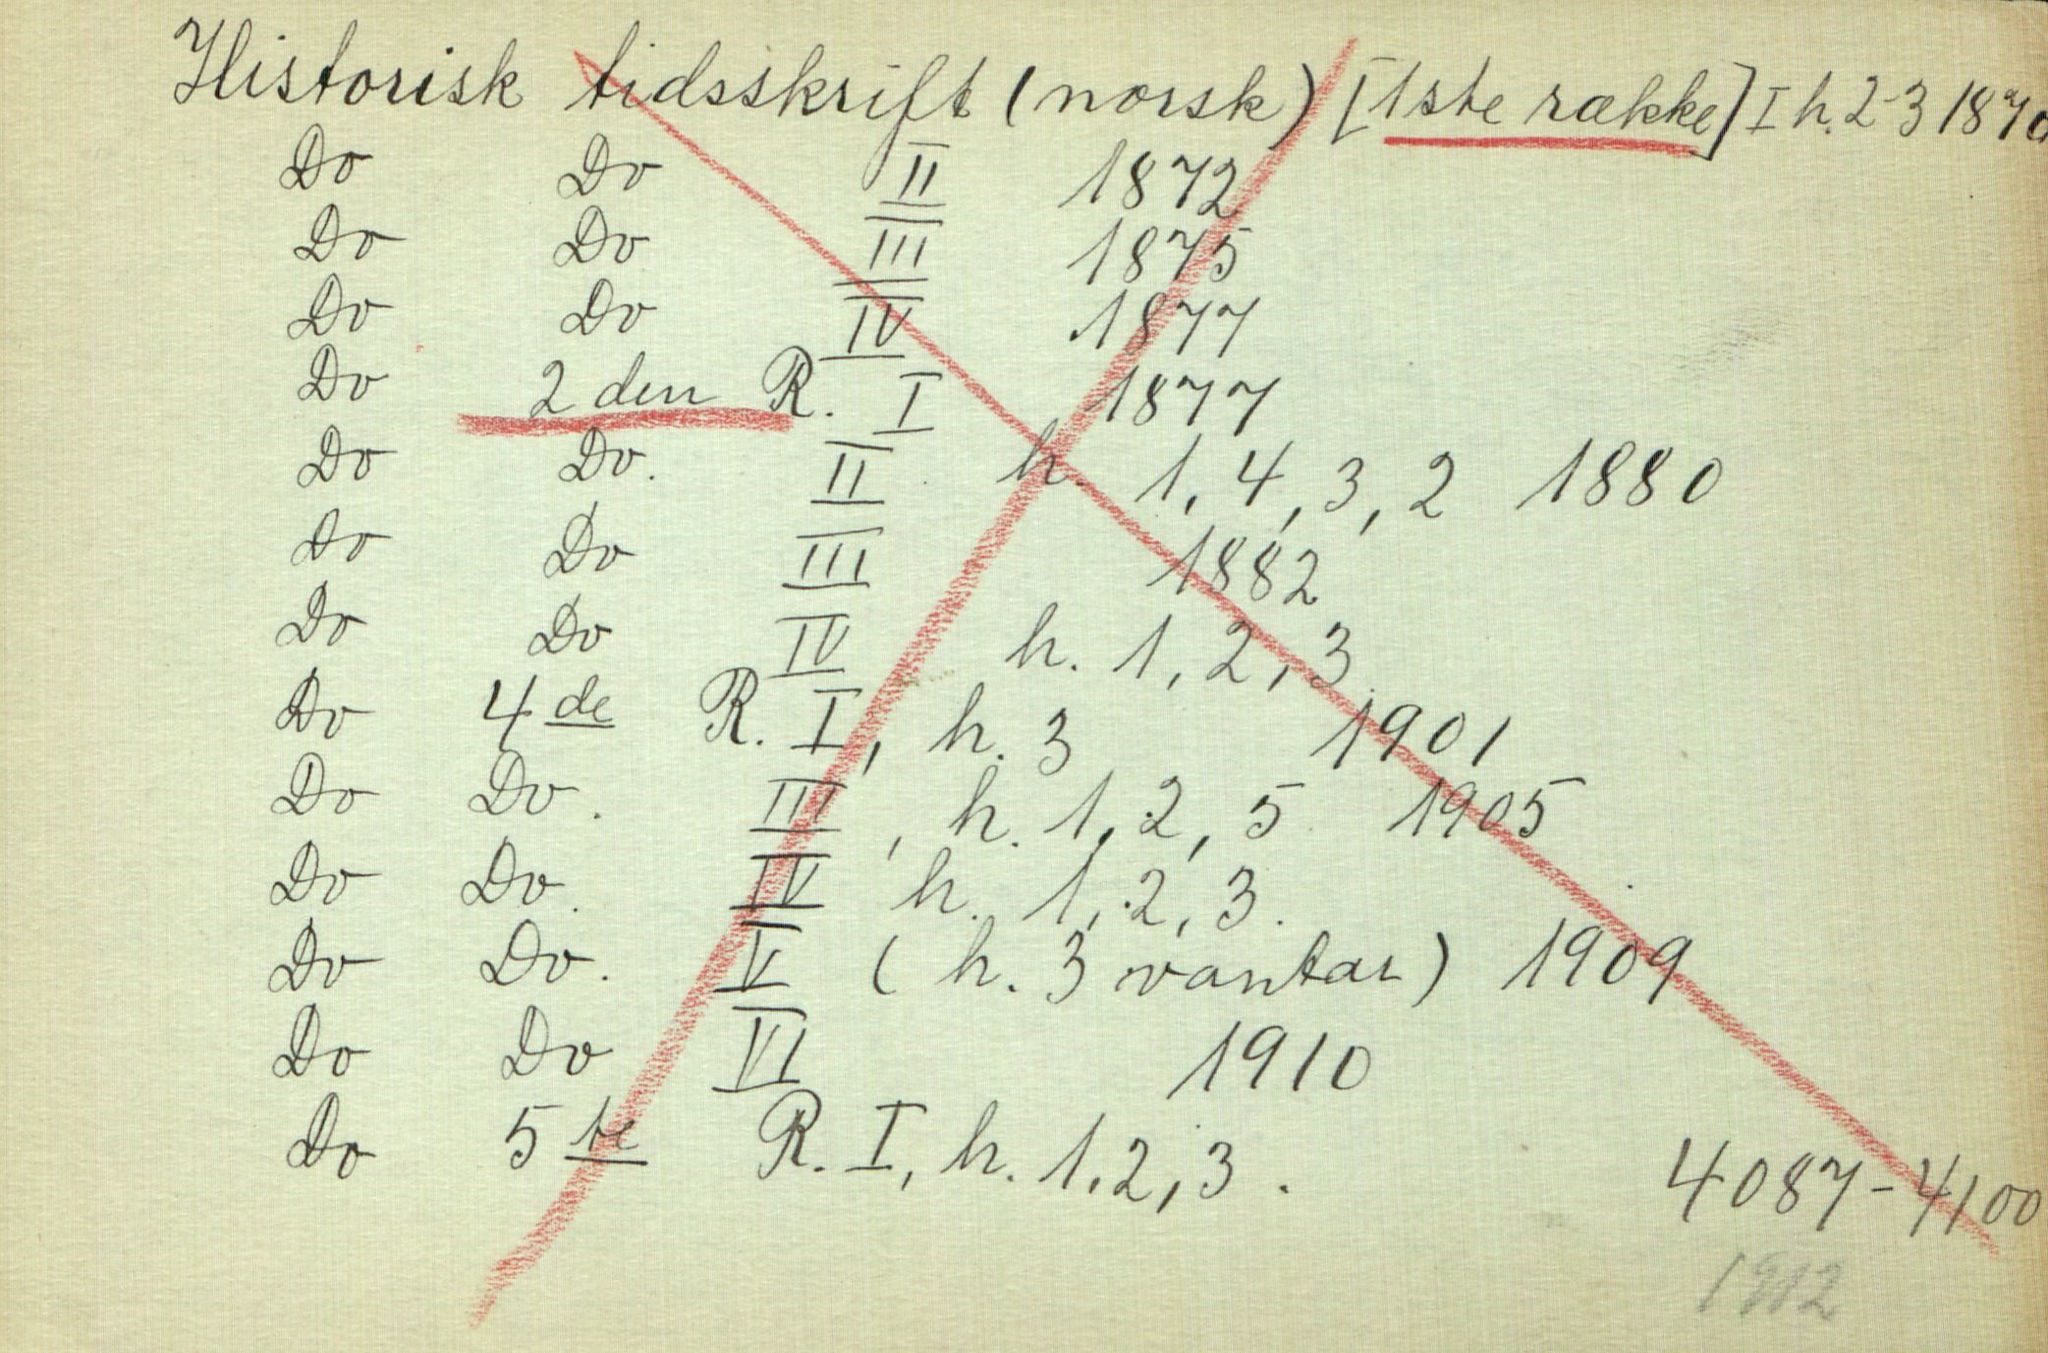 Historisk tidsskrift (norsk) [1ste række] I h. 2-3 1870
Do Do II 1872
Do Do III 1875
Do Do IV 1877
Do 2den R. I 1877
Do Do. II h. 1, 4, 3, 2 1880
Do Do III 1882
Do Do IV h. 1, 2, 3.
Do 4de R. I, h. 3 1901
Do Do. III, h. 1, 2, 5 1905
Do Do. IV h. 1, 2, 3.
Do Do. V (h. 3 vantar) 1909
Do Do VI 1910
Do 5te R. I, h. 1, 2, 3.
4087-4100
1912